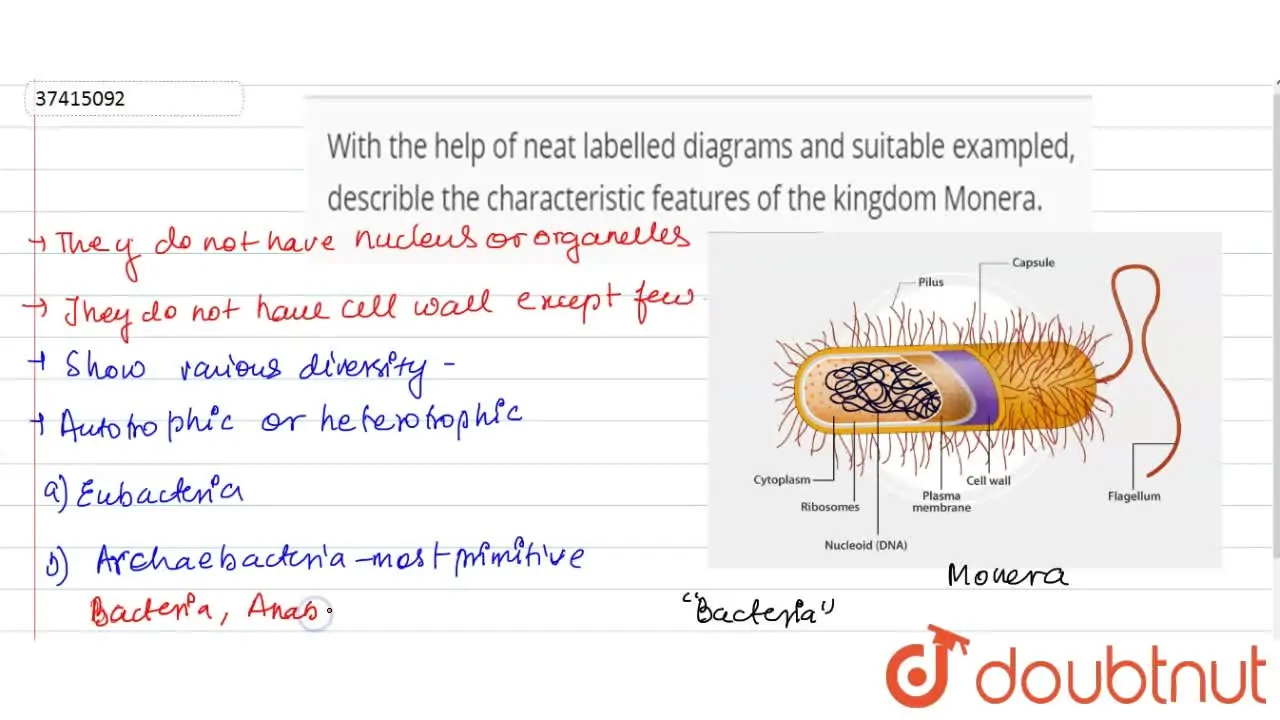 37415092
With the help of neat labelled diagrams and suitable exampled,
describle the characteristic features of the kingdom Monera.
→ They do not have nucleus or organelles
→ They do not have cell wall except few -
→ Show various diversity -
→ Autotrophic or heterotrophic
a) Eubacteria
b) Archaebacteria - most primitive
Bacteria, Anab
Capsule
Pilus
Cytoplasm
Ribosomes
Nucleoid (DNA)
Plasma
membrane
Cell wall
Flagellum
Monera
"Bacteria"
doubtnut